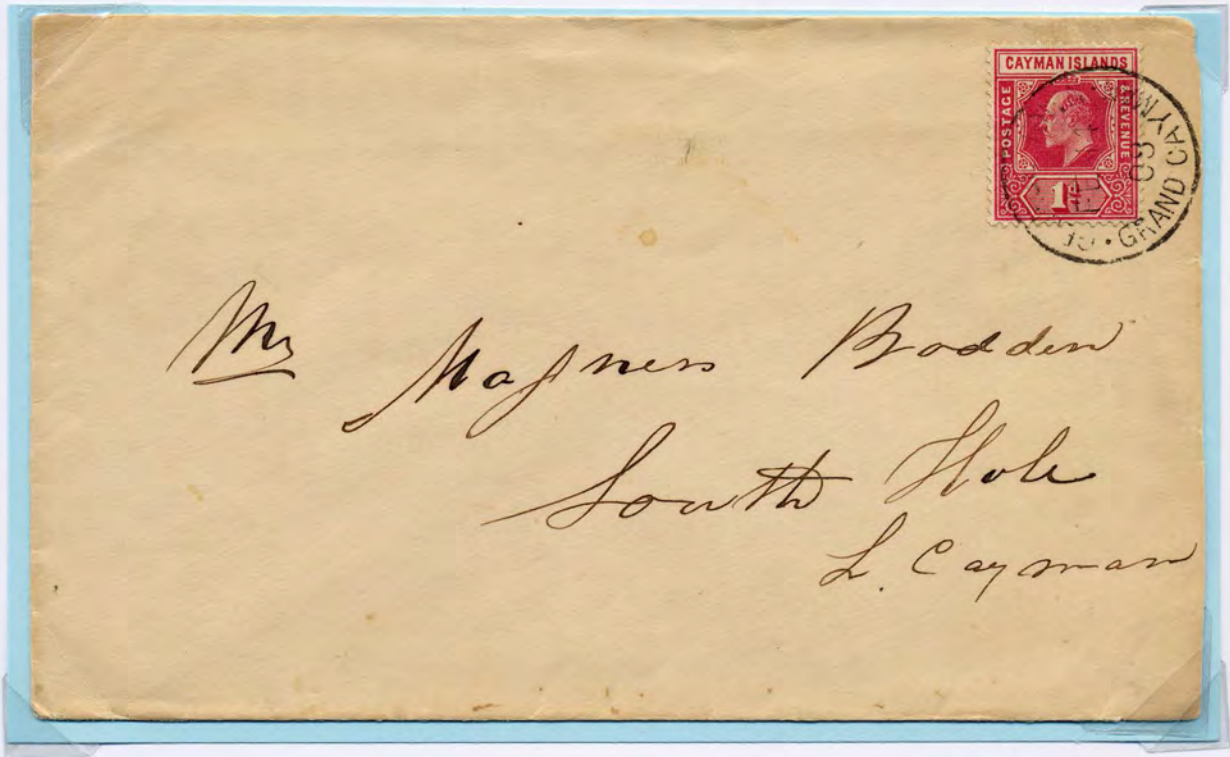 CAYMAN ISLANDS
POSTAGE
& REVENUE
1d
GRAND CAYM
08
Mr Magness Bodden
South Hole
L. Cayman